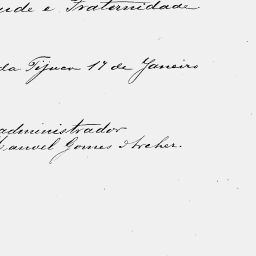 ude e Fraternidade
da Tijuca 17 de Janeiro
administrador
Manoel Gomes Archer.